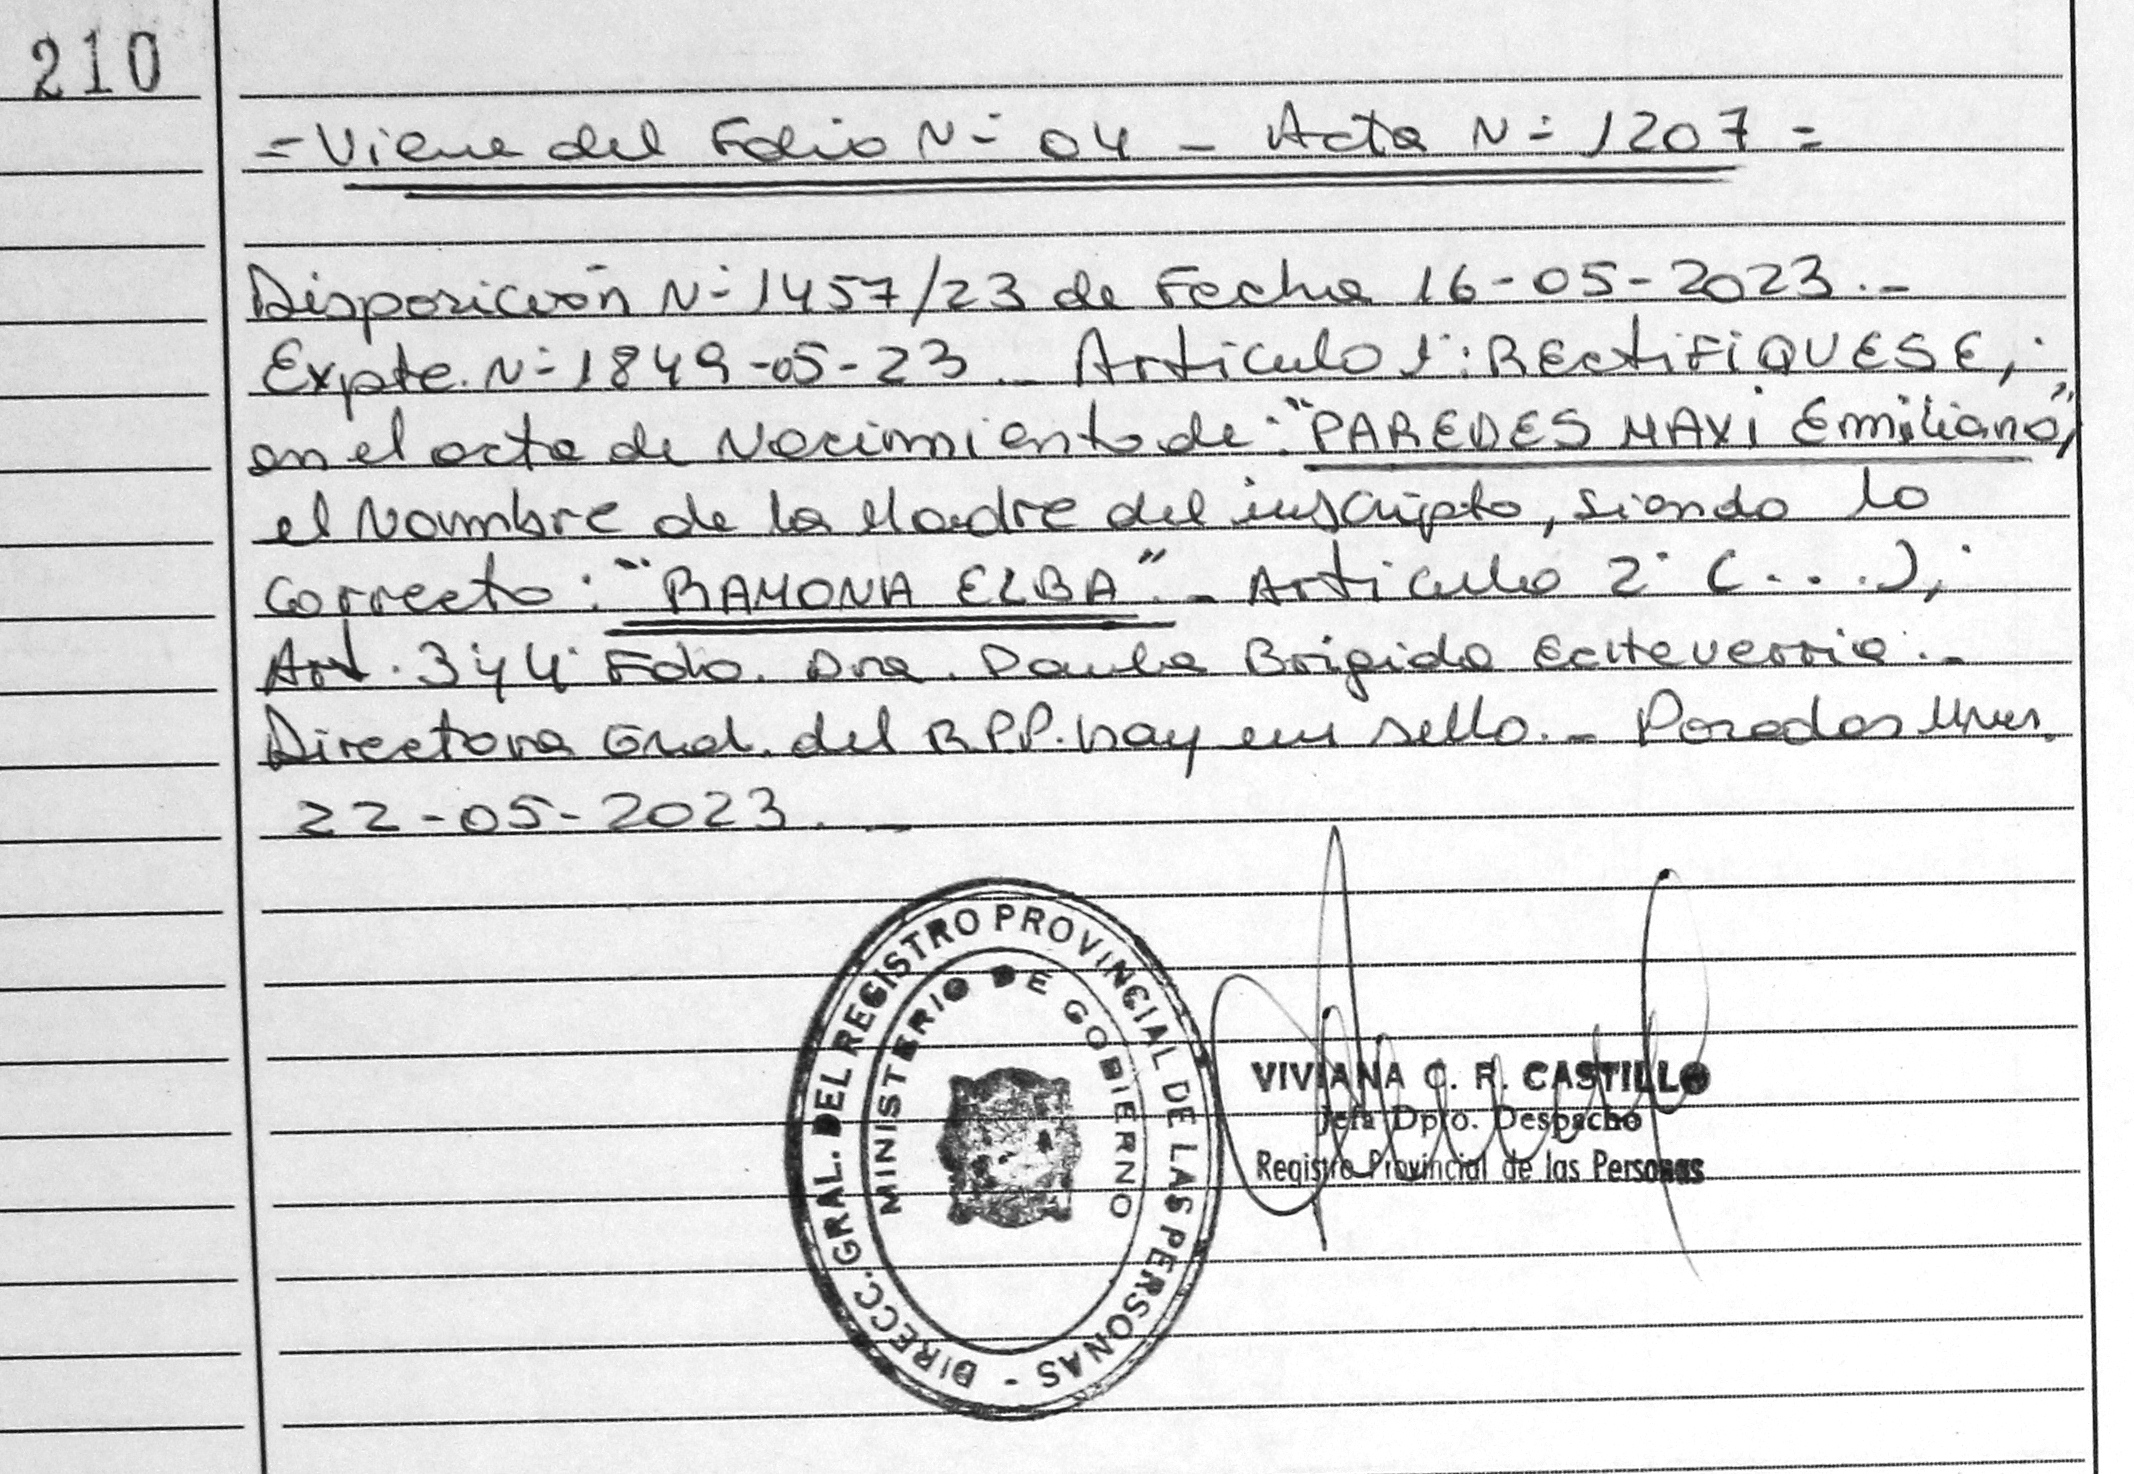 210
= Viene del Folio N° 04 - Acta N° 1207 =
Disposición N° 1457/23 de Fecha 16-05-2023.-
Expte. N° 1849-05-23 - Artículo 1°: RECtiFiQUESE,
en el acta de Nacimiento de: "PAREDES MAXi Emiliano",
el Nombre de la Madre del inscripto, siendo lo
correcto: "RAMONA ELBA".- Artículo 2° (...),
Art. 3 y 4° Fdo. Dra. Paula Brigida Echeverria.-
Directora Gral. del R.P.P. hay un sello.- Posadas Mnes.
22-05-2023.-
DIRECC. GRAL. DEL REGISTRO PROVINCIAL DE LAS PERSONAS -
MINISTERIO DE GOBIERNO
VIVIANA C. R. CASTILLO
Jefa Dpto. Despacho
Registro Provincial de las Personas